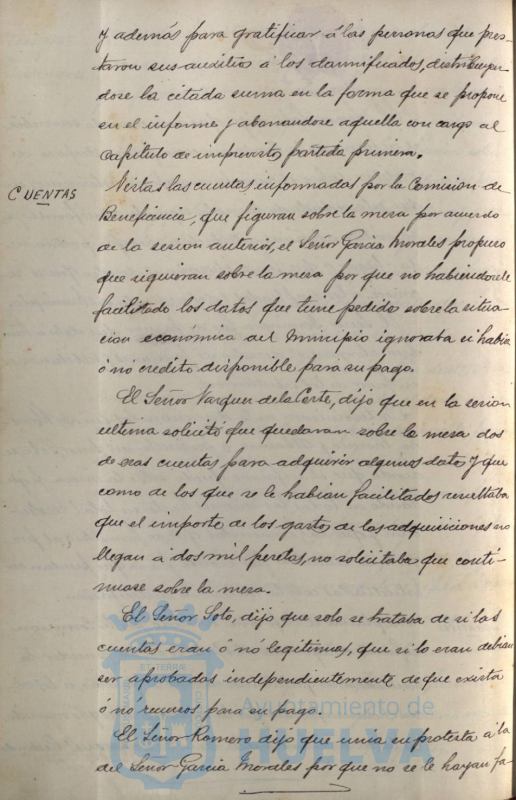 y además para gratificar á las personas que pres-
taron sus auxilios á los damnificados, distribuyen-
dose la citada suma en la forma que se propone
en el informe y abonandose aquella con cargo al
Capitulo de imprevistos partida primera.
CUENTAS
Vistas las cuentas informadas por la Comision de
Beneficencia, que figuran sobre la mesa por acuerdo
de la sesion anterior, el Señor Garcia Morales propuso
que siguieran sobre la mesa por que no habiendosele
facilitado los datos que tiene pedido sobre la situa-
cion económica del Municipio ignoraba si habia
ó nó credito disponible para su pago.
El Señor Vazquez de la Corte, dijo que en la sesion
ultima solicitó que quedaran sobre la mesa dos
de esas cuentas para adquirir algunos datos y que
como de los que se le habian facilitados resultaba
que el importe de los gastos de las adquisiciones no
llegan á dos mil pesetas, no solicitaba que conti-
nuase sobre la mesa.
El Señor Soto, dijo que solo se trataba de si las
cuentas eran ó nó legitimas, que si lo eran debian
ser aprobadas independientemente de que exista
ó nó recursos para su pago.
El Señor Romero dijo que unia su protesta á la
del Señor Garcia Morales por que no se le hayan fa-
Ayuntamiento de
HUELVA